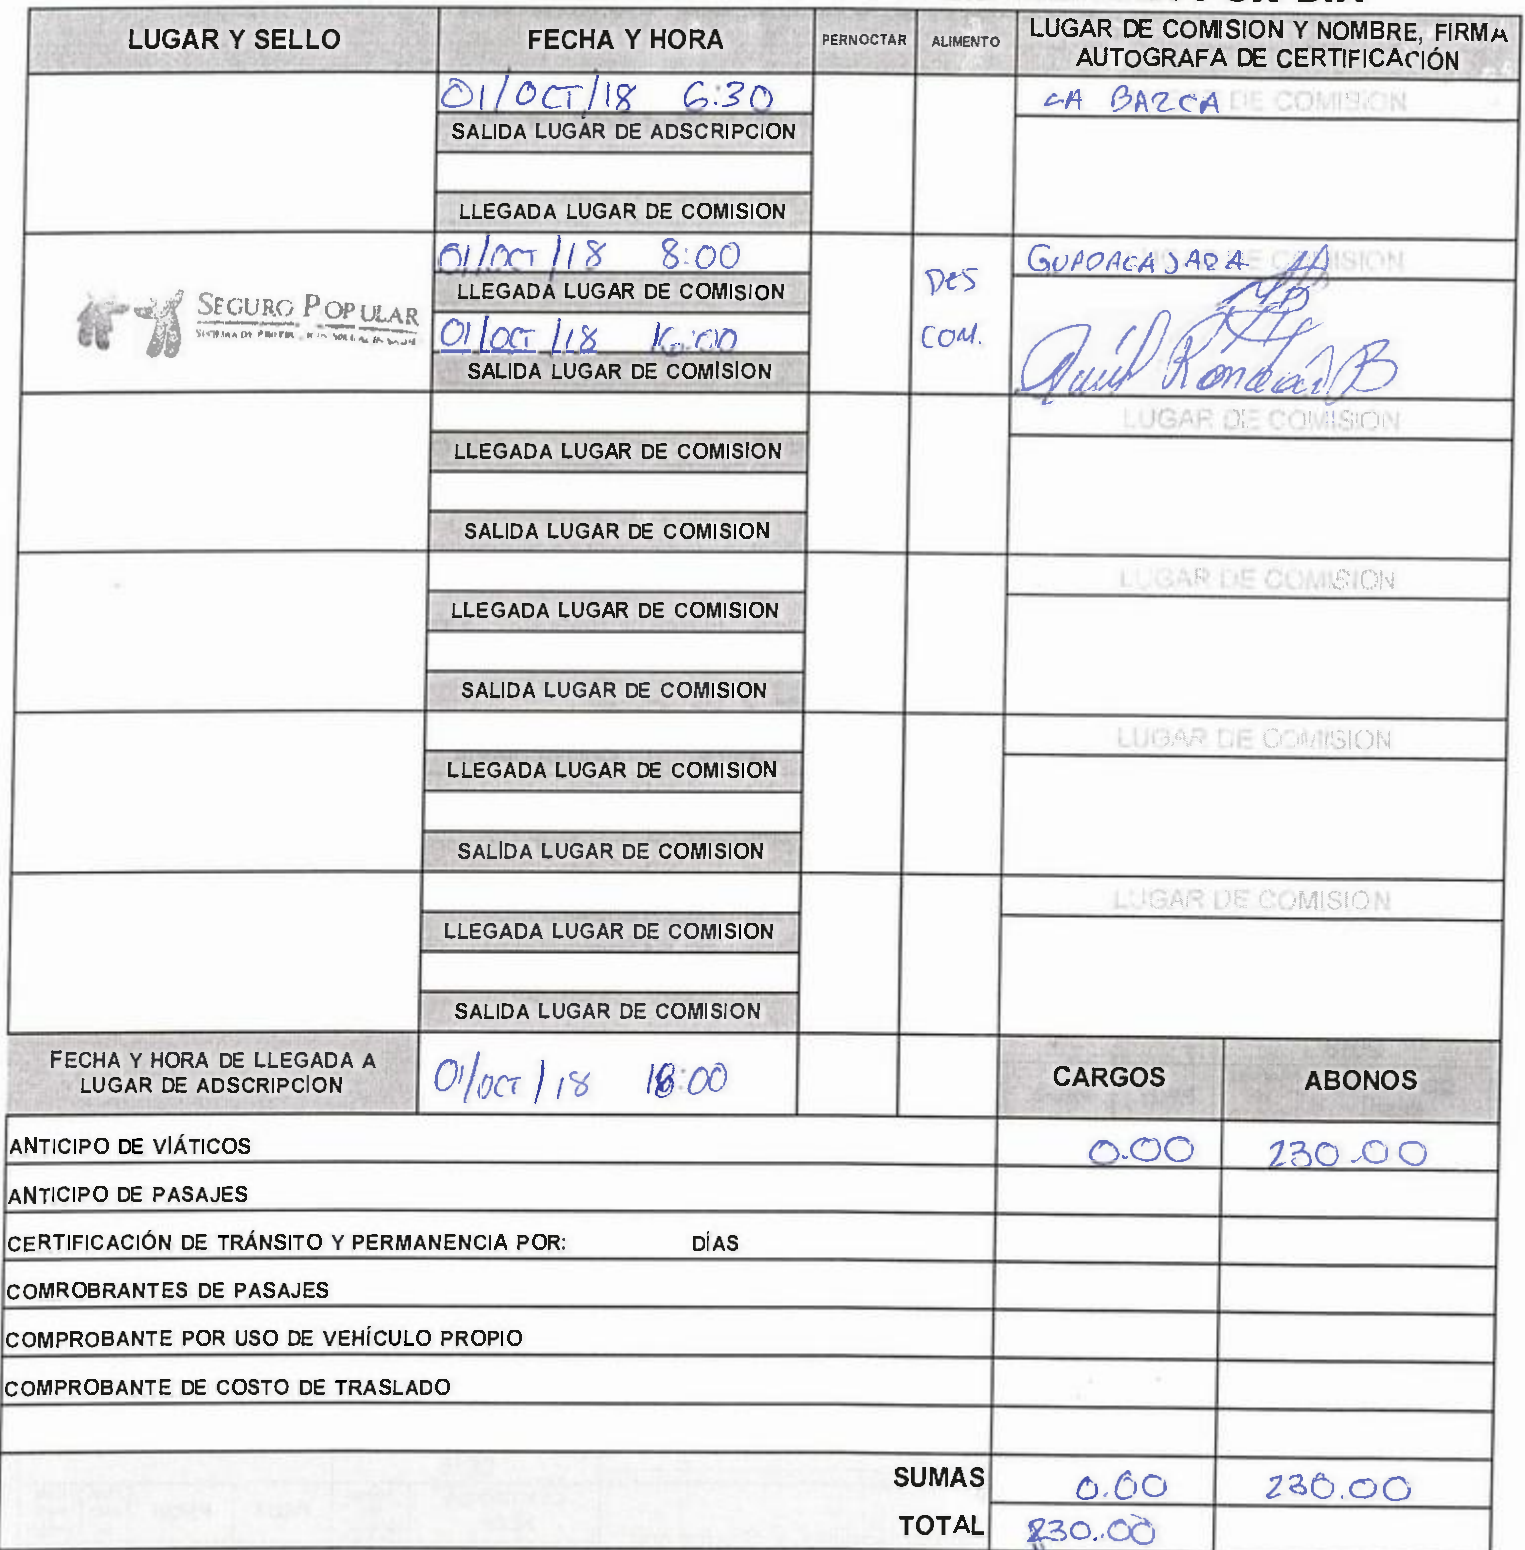 LUGAR Y SELLO FECHA Y HORA PERNOCTAR ALIMENTO LUGAR DE COMISION Y NOMBRE, FIRMA
AUTOGRAFA DE CERTIFICACIÓN
01/OCT/18 6:30 LA BARCA DE COMISION
SALIDA LUGAR DE ADSCRIPCION
LLEGADA LUGAR DE COMISION
01/OCT/18 8:00 GUADALAJARA COMISION
LLEGADA LUGAR DE COMISION DES
SEGURO POPULAR
01/OCT/18 16:00 COM.
SALIDA LUGAR DE COMISION
LUGAR DE COMISION
LLEGADA LUGAR DE COMISION
SALIDA LUGAR DE COMISION
LUGAR DE COMISION
LLEGADA LUGAR DE COMISION
SALIDA LUGAR DE COMISION
LUGAR DE COMISION
LLEGADA LUGAR DE COMISION
SALIDA LUGAR DE COMISION
LUGAR DE COMISION
LLEGADA LUGAR DE COMISION
SALIDA LUGAR DE COMISION
FECHA Y HORA DE LLEGADA A
LUGAR DE ADSCRIPCION 01/OCT/18 18:00 CARGOS ABONOS
ANTICIPO DE VIÁTICOS 0.00 230.00
ANTICIPO DE PASAJES
CERTIFICACIÓN DE TRÁNSITO Y PERMANENCIA POR: DÍAS
COMROBRANTES DE PASAJES
COMPROBANTE POR USO DE VEHÍCULO PROPIO
COMPROBANTE DE COSTO DE TRASLADO
SUMAS 0.00 230.00
TOTAL 230.00